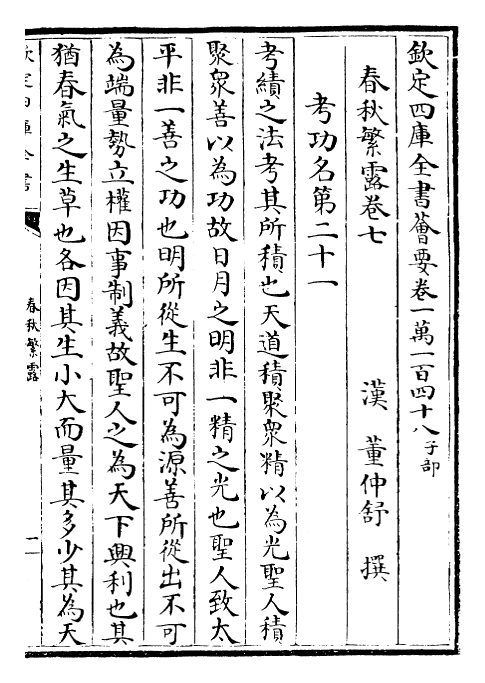 欽定四庫全書薈要卷一萬一百四十八子部
春秋繁露卷七　漢　董仲舒　撰
考功名第二十一
考績之法考其所積也天道積聚衆精以為光聖人積
聚衆善以為功故日月之明非一精之光也聖人致太
平非一善之功也明所從生不可為源善所從出不可
為端量勢立權因事制義故聖人之為天下興利也其
猶春氣之生草也各因其生小大而量其多少其為天
欽定四庫全書
春秋繁露
一